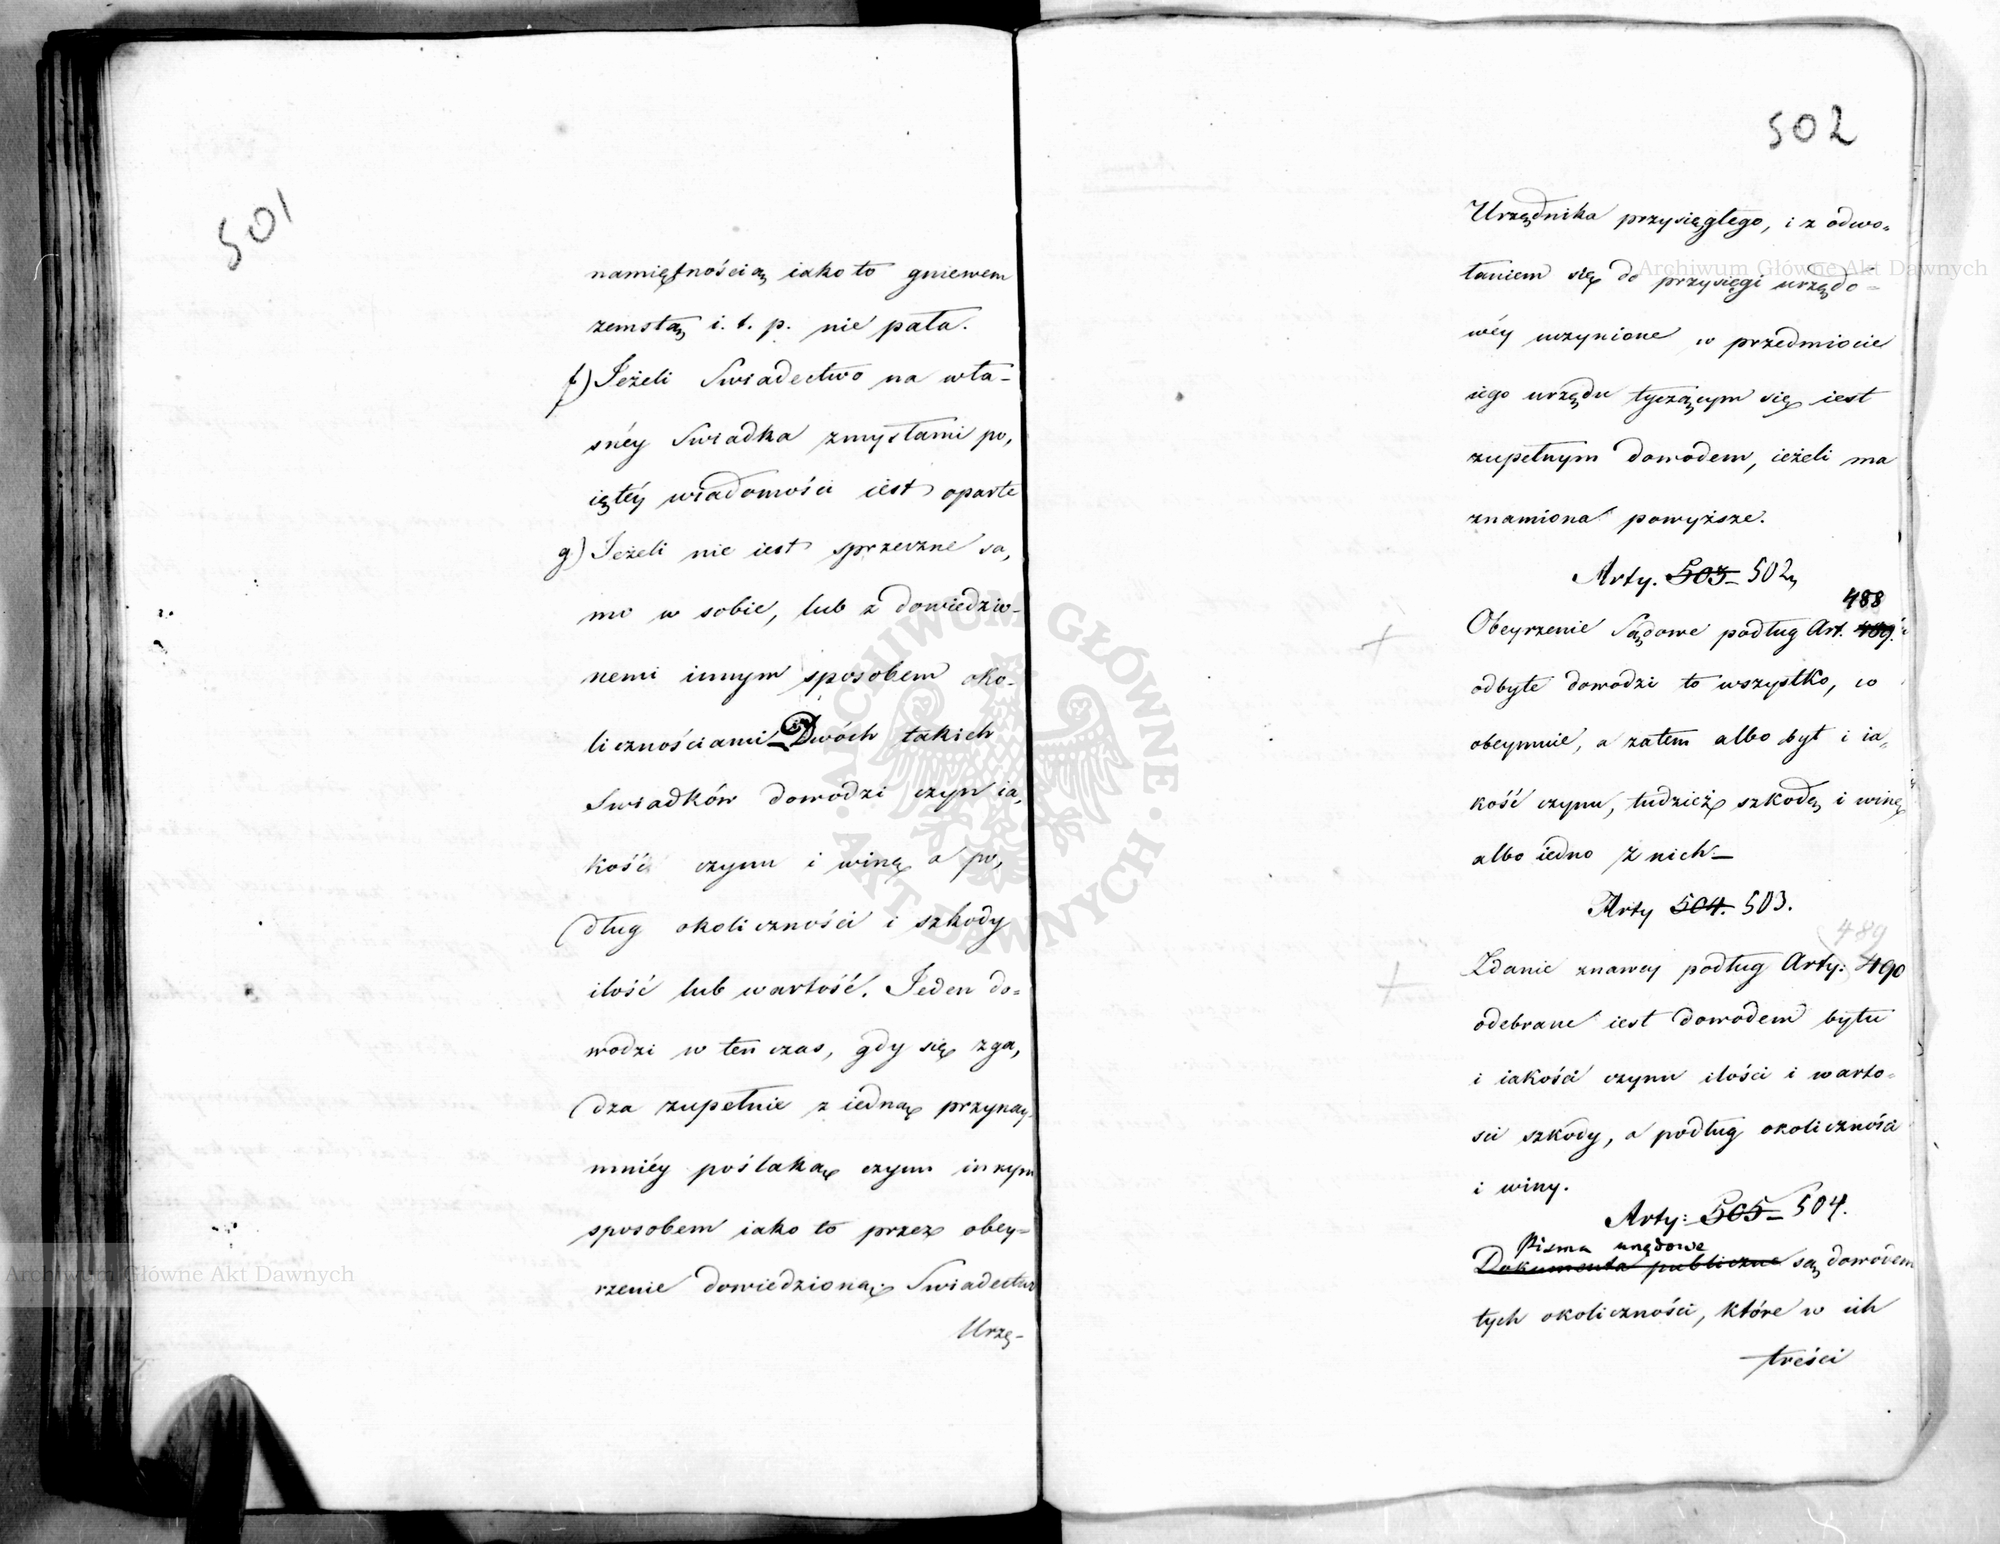 501
namiętnościąiako to gniewem
zemstą i. t. p. nie pała.
f) Jeżeli Swiadectwo na wła-
snéy Swiadka zmysłami po,
iętéy wiadomości iest oparte
g) Jeżeli nie iest sprzeczne sa,
mo w sobie, lub z dowiedzio-
nemi innym sposobem oko-
licznościami_ Dwóch takich
Swiadków dowodzi czyn ia,
kość czynu i winę a po,
dług okoliczności i szkody
ilość lub wartość. Jeden do-
wodzi w ten czas, gdy się zga,
dza zupełnie z iedną przynay-
mniéy poślaką czynu innym
sposobem iako to przez obey-
rzenie dowiedzioną; Swiadectwo
Urzę-
502
Urzędnika przysięgłego, i z odwo-
łaniem się do przysięgi urzędo-
wéy uczynione w przedmiocie
iego urzędu tyczącym się iest
zupełnym dowodem, ieżeli ma
znamiona powyższe.
Arty. 503_ 502,
488
Obeyrzenie Sądowe podług Art. 489.
odbyte dowodzi to wszystko, co
obeymuie, a zatem albo byt i ia,
kość czynu, tudzież szkodę i winę
albo iedno z nich_
Arty 504. 503.
489
Zdanie znawcy podług Arty: 490
odebrane iest dowodem bytu
i iakości czynu ilości i warto-
sci szkody, a podług okoliczności
i winy.
Arty: 505_ 504.
Pisma urzędowe
Dokumenta publiczne są dowodem
tych okoliczności, które w ich
treści
Archiwum Główne Akt Dawnych
Archiwum Główne Akt Dawnych
· ARCHIWUM GŁÓWNE · AKT DAWNYCH ·